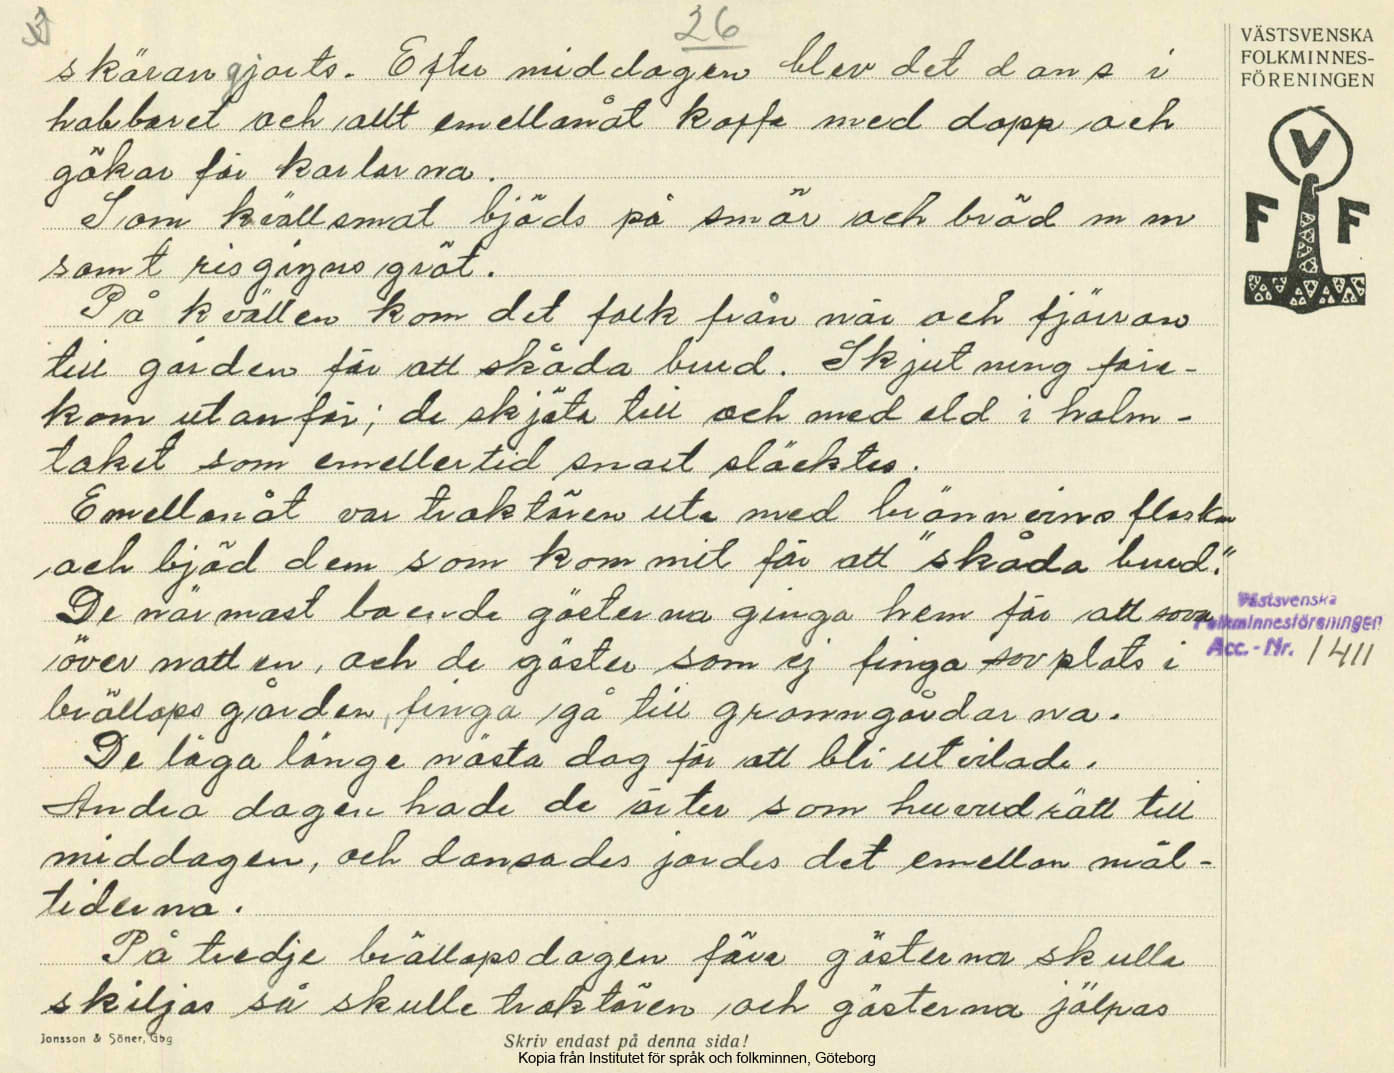 26
VÄSTSVENSKA
FOLKMINNES-
FÖRENINGEN
V
F F
skäran gjorts. Efter middagen blev det dans i
habbaret och allt emellanåt kaffe med dopp och
gökar för karlarna.
Som kvällsmat bjöds på smör och bröd m m
samt risgryns gröt.
På kvällen kom det folk från när och fjärran
till gården för att skåda brud. Skjutning före-
kom utanför; de skjöto till och med eld i halm-
taket som emellertid snart släcktes.
Emellanåt var traktören ute med brännvinsflaskan
och bjöd dem som kommit för att "skåda brud."
De närmast boende gästerna ginga hem för att sova
över natten, och de gäster som ej finga sovplats i
bröllops gården, finga gå till granngårdarna.
De låga länge nästa dag för att bli utvilade.
Andra dagen hade de ärter som huvudrätt till
middagen, och dansades jordes det emellan mål-
tiderna.
På tredje bröllopsdagen före gästerna skulle
skiljas så skulle traktören och gästerna jälpas
Västsvenska
Folkminnesföreningen
Acc.-Nr. 1411
Jonsson & Söner, Gbg
Skriv endast på denna sida!
Kopia från Institutet för språk och folkminnen, Göteborg